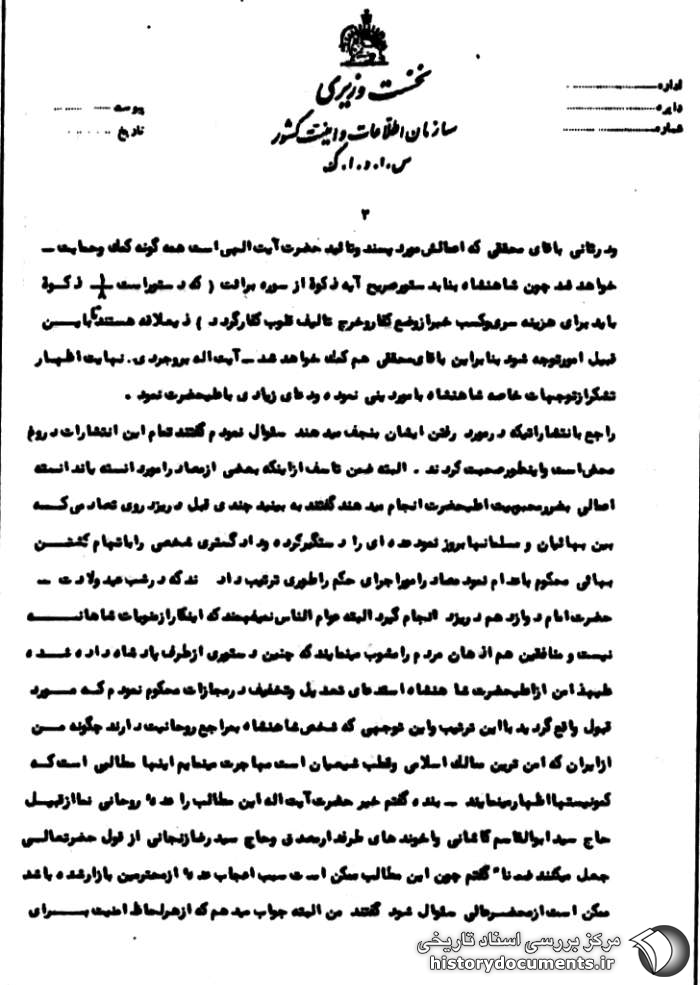 نخست وزیری
سازمان اطلاعات و امنیت کشور
س.ا.و.ا.ک
اداره
دایره
شماره
پیوست
تاریخ
۲
ودرثانی باقای محققی که اعمالش مورد پسند وتائید حضرت آیت الهی است همه گونه کمك وحمایت ـ
خواهد شد چون شاهنشاه بنابدستورصریح آیه ذکوة از سوره برائت ( که دستوراست ۱/۸ ذکوة
باید برای هزینه سری وکسب خبرازوضع کفاروخرج تالیف قلوب کفارگردد ) ذیعلاقه هستند تا باین
قبیل امورتوجه شود بنابراین باقای محققی هم کمك خواهد شد ـ آیت اله بروجردی . نهایت اظهار
تشکرازتوجهات خاصه شاهنشاه بامور دینی نموده ودعای زیادی باعلیحضرت نمود .
راجع بانتشاراتیکه درمورد رفتن ایشان بنجف میدهند سئوال نمودم گفتند تمام این انتشارات دروغ
محض است واینطورصحبت کردند . البته ضمن تاسف ازاینکه بعضی ازمصادرامور دانسته یاندانسته
اعمالی بضررمحبوبیت اعلیحضرت انجام میدهند گفتند به بینید چندی قبل دریزد روی تصادمی که
بین بهائیان و مسلمانها بروز نمود عده ای را دستگیرکرده ودادگستری شخصی را باتهام کشتن
بهائی محکوم باعدام نمود مصادرامور اجرای حکم راطوری ترتیب داد ند که درشب عید ولادت ـ
حضرت امام دوازدهم دریزد انجام گیرد البته عوام الناس نمیفهمند که اینکارازمنویات شاهانه
نیست و منافقین هم اذهان مردم رامشوب مینمایند که چنین دستوری ازطرف پادشاه داده شده
علیهذا من ازاعلیحضرت شاهنشاه استدعای تعدیل وتخفیف درمجازات محکوم نمودم که مورد
قبول واقع گردید بااین ترتیب واین توجهی که شخص شاهنشاه بمراجع روحانیت دارند چگونه من
ازایران که امن ترین ممالك اسلامی وقطب شیعیان است مهاجرت مینمایم اینها مطالبی است که
کمونیستها اظهار مینمایند ـ بنده گفتم خیر حضرت آیت اله این مطالب را عده روحانی نما ازقبیل
حاج سید ابوالقاسم کاشانی واخوندهای طرفدارمصدق وحاج سید رضا زنجانی از قول حضرتعالی
جعل میکنند ضمنا" گفتم چون این مطالب ممکن است سبب اعجاب عده ازمحترمین بازارشده باشد
ممکن است ازمحضرعالی سئوال شود گفتند من البته جواب میدهم که ازهرلحاظ امنیت برای
مرکز بررسی اسناد تاریخی
historydocuments.ir